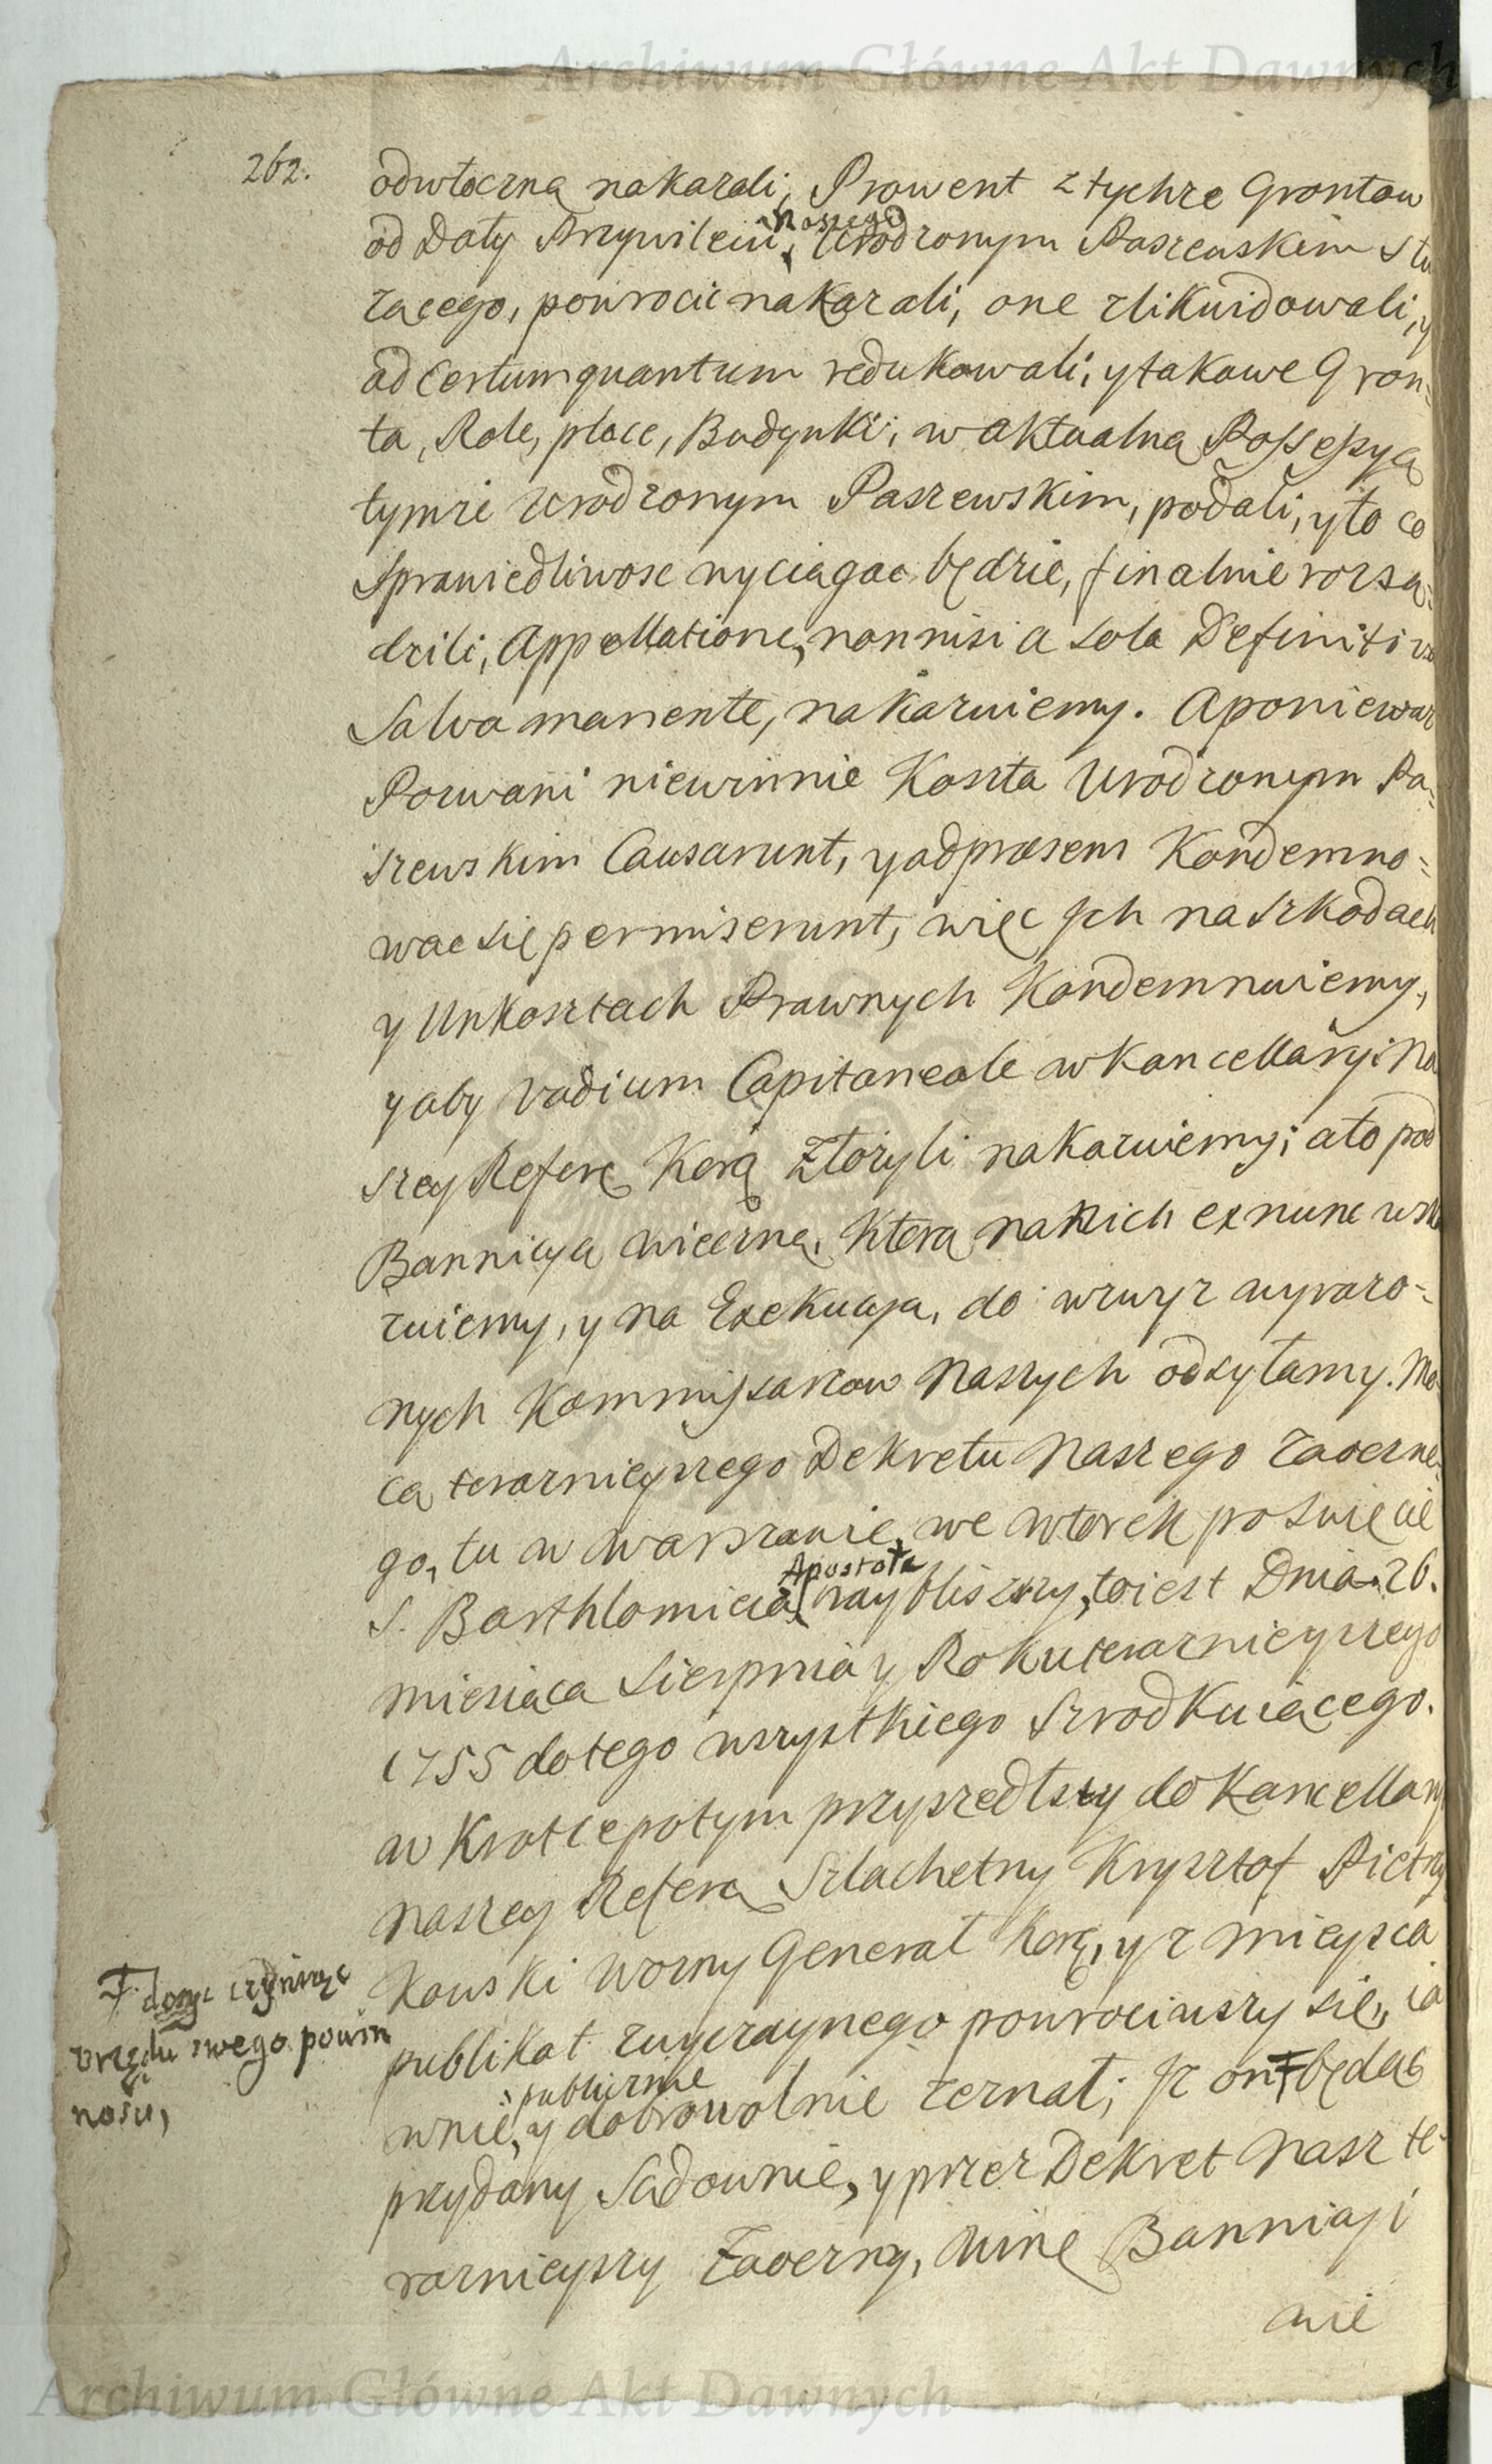 Archiwum Główne Akt Dawnych
262.
odwłoczną nakazali, Prowent z tychże Grontow
od Daty Przywileiu, Naszego Urodzonym Paszewskim słu
zącego, powrocic nakazali, one zlikwidowali, y
ad Certum quantum redukowali, y takowe Gron=
ta, Role, place, Budynki, w aktualną Possessyą
tymże Urodzonym Paszewskim, podali, y to co
Sprawiedliwosc wyciągac będzie, finalnie rozsą=
dzili, Appellatione, nonnisi a sola Definitiva
Salva manente, nakazuiemy. A poniewaz
Pozwani niewinnie Koszta Urodzonym Pa=
szewskim Causarunt, y ad præsens Kondemno=
wac się permiserunt, więc Jch na szkodach
y Unkosztach Prawnych Kondemnuiemy,
y aby vadium Capitaneale w Kancellaryi Na
szey Refere Korą złozyli nakazuiemy; a to pod
Bannicyą wieczną, ktorą na Nich ex nunc wska
zuiemy, y na Exekucyą, do wzwyz wyrazo=
nych Kommissarzow Naszych odsyłamy. Mo
cą teraznieyszego Dekretu Naszego Zaoczne=
go, tu w Warszawie, we wtorek po Swięcie
S. Barthłomieia Apostoła nayblizszy, to iest Dnia 26.
miesiąca Sierpnia y Roku teraznieyszego
1755 do tego wszystkiego szrodkuiącego.
w Krotce potym przyszedłszy do Kancellaryi
Naszey Refera Szlachetny Krysztof Pietrzy
kowski Wozny Generał Korą, y z mieysca
publikat zwyczaynego powrociwszy się, ia
wnie, publicznie y dobrowolnie zeznał; Jz on ꟻ będąc
ꟻ. dosyc czyniąc
urzędu swego powin
nosci,
przydany Sądownie, y przez Dekret Nasz te=
raznieyszy Zaoczny, Winę Bannicyi
wie
Archiwum Główne Akt Dawnych